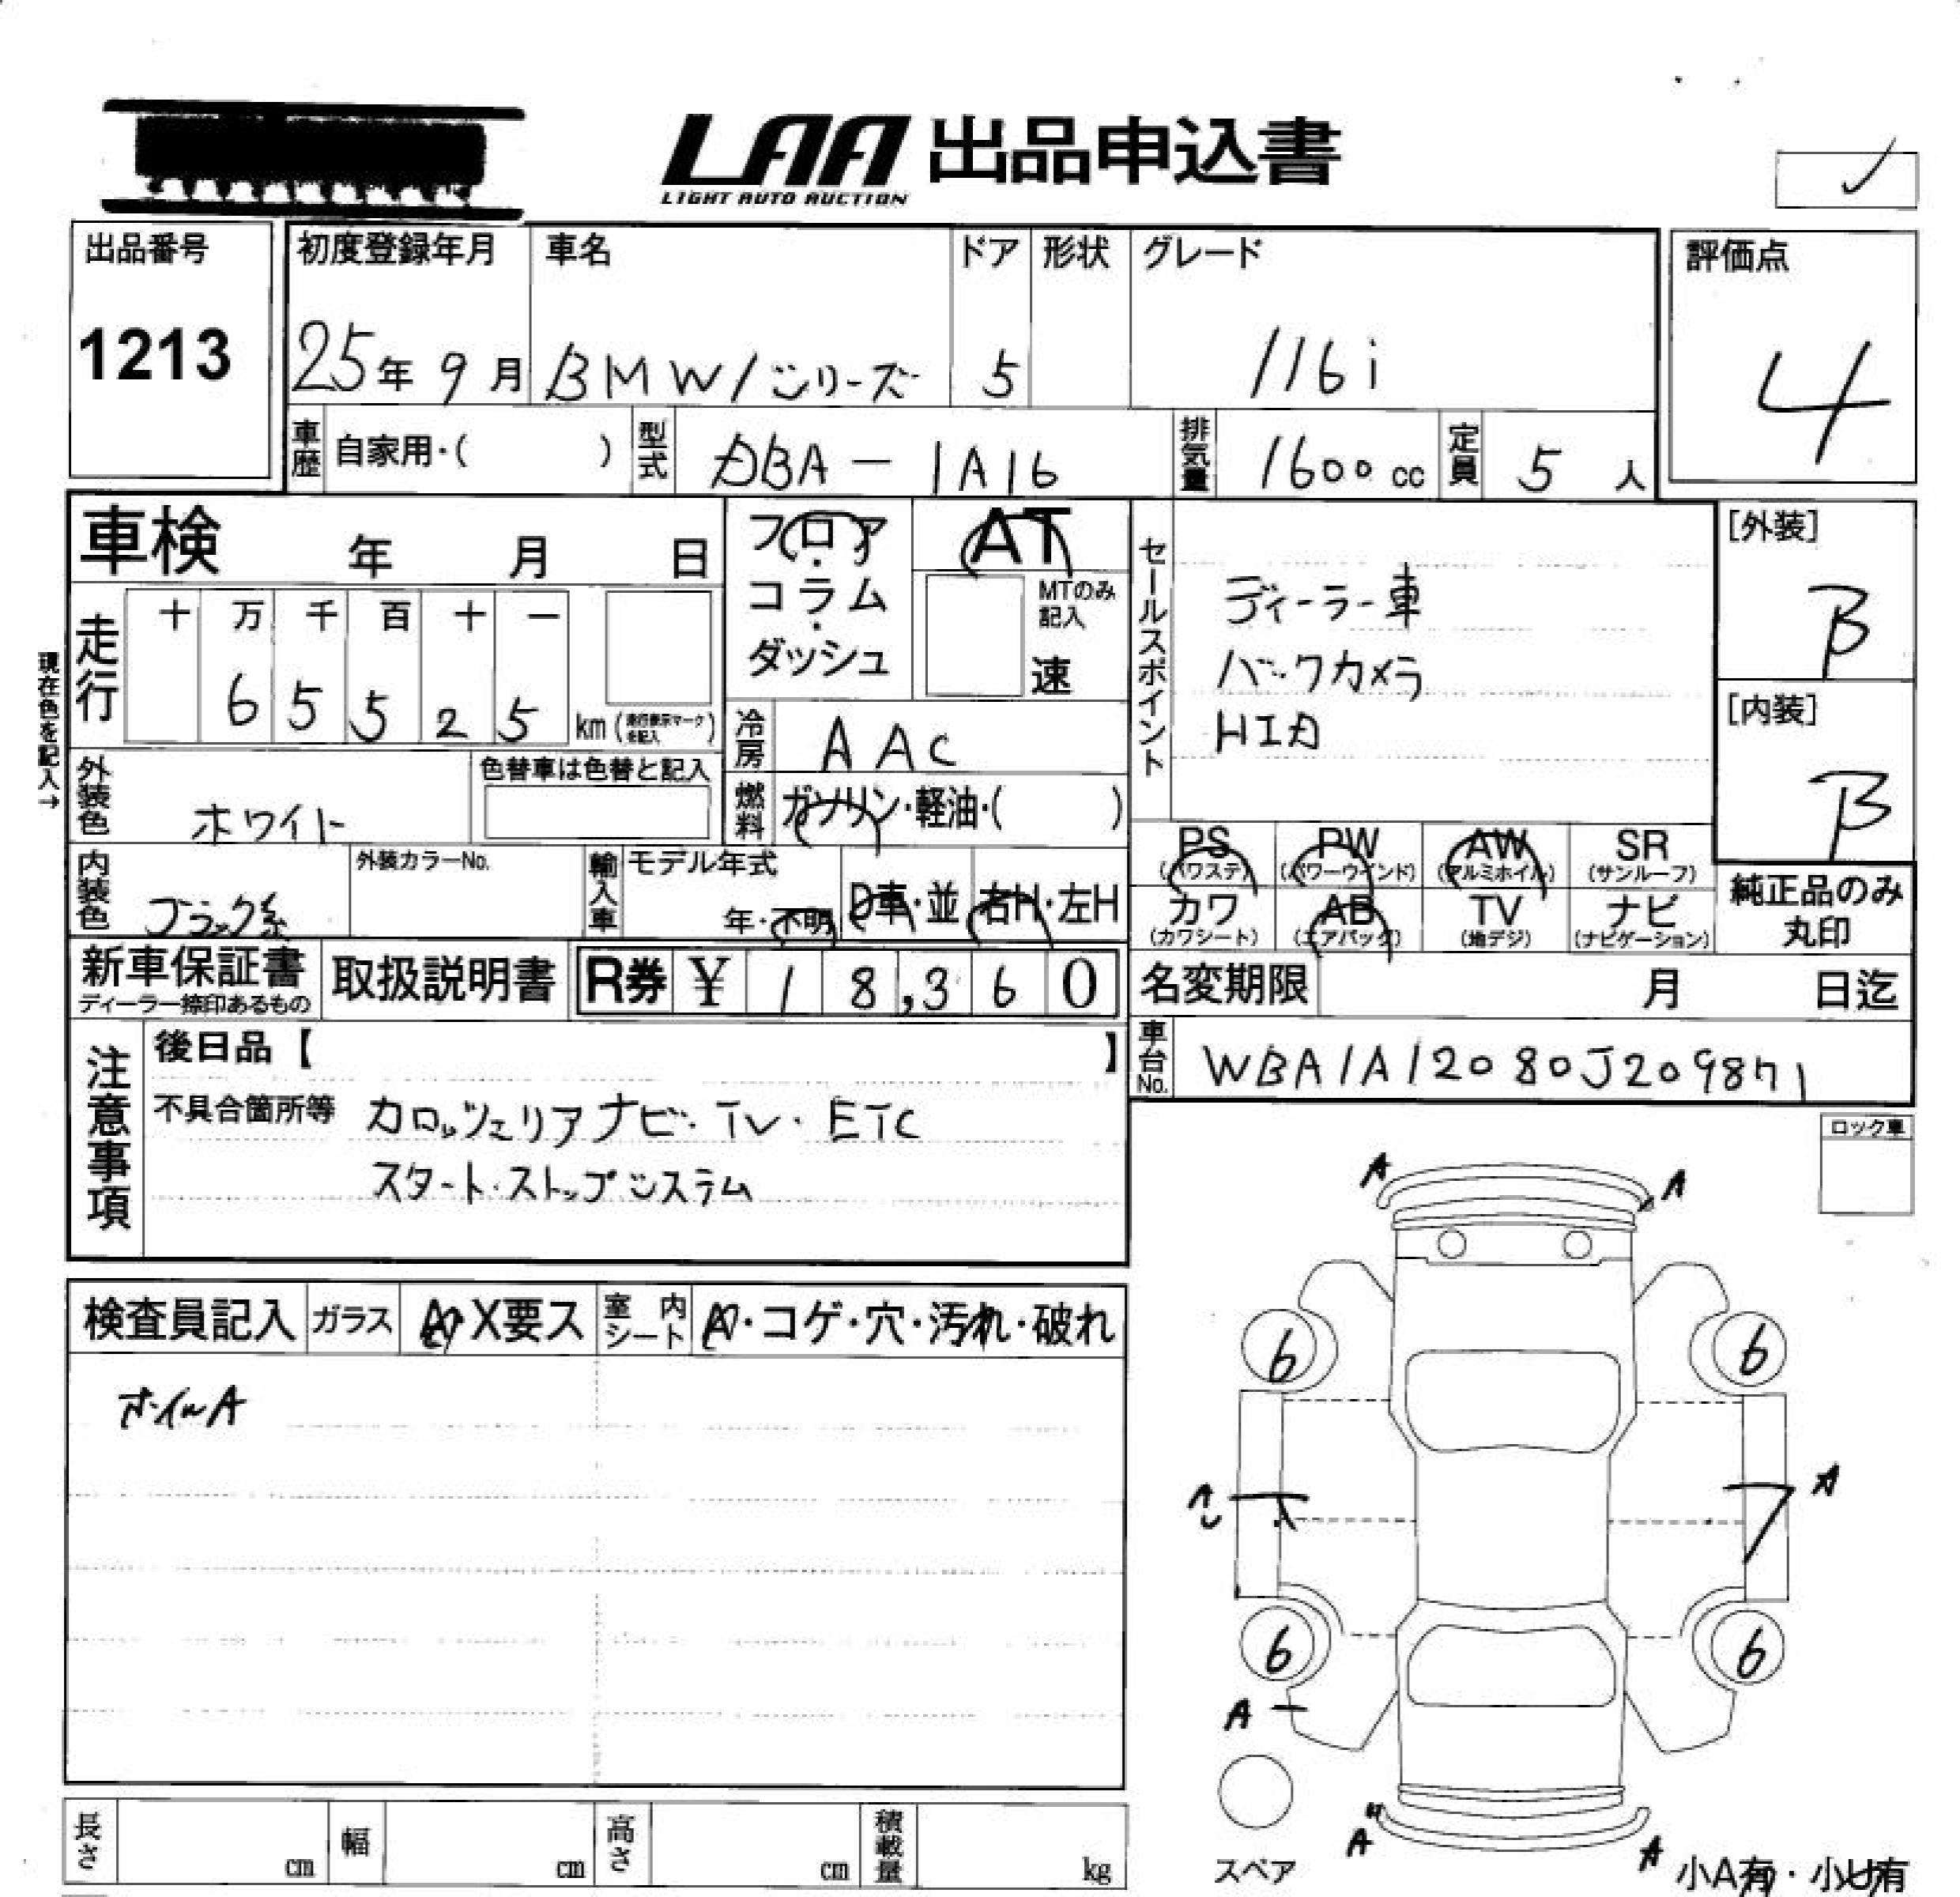 LAA 出品申込書
LIGHT AUTO AUCTION
出品番号
1213
初度登録年月
25年 9月
車名
BMW1シリーズ
ドア
5
形状
グレード
116i
評価点
4
車歴 自家用・( )
型式 DBA-1A16
排気量 1600cc
定員 5人
車検 年 月 日
フロア・コラム・ダッシュ
AT
MTのみ記入
速
セールスポイント
ディーラー車
バックカメラ
HID
[外装]
B
[内装]
B
現在色を記入→
走行
十 万 千 百 十 一
6 5 5 2 5 km (走行表示マークを記入)
冷房 AAC
燃料 ガソリン・軽油・( )
外装色 ホワイト
色替車は色替と記入
内装色 ブラック系
外装カラーNo.
輸入車
モデル年式
年・不明
D車・並
右H・左H
PS (パワステ)
PW (パワーウインド)
AW (アルミホイル)
SR (サンルーフ)
カワ (カワシート)
AB (エアバッグ)
TV (地デジ)
ナビ (ナビゲーション)
純正品のみ丸印
新車保証書
ディーラー捺印あるもの
取扱説明書
R券 ¥ 18,360
名変期限 月 日迄
車台No. WBA1A12080J209871
注意事項
後日品【 】
不具合箇所等 カロッツェリアナビ・TV・ETC
スタート・ストップシステム
ロック車
検査員記入
ガラス A・X要ス
室内シート A・コゲ・穴・汚れ・破れ
ホイルA
A A
6 6
A
6 6
A
A A
スペア
小A有・小U有
長さ cm
幅 cm
高さ cm
積載量 kg